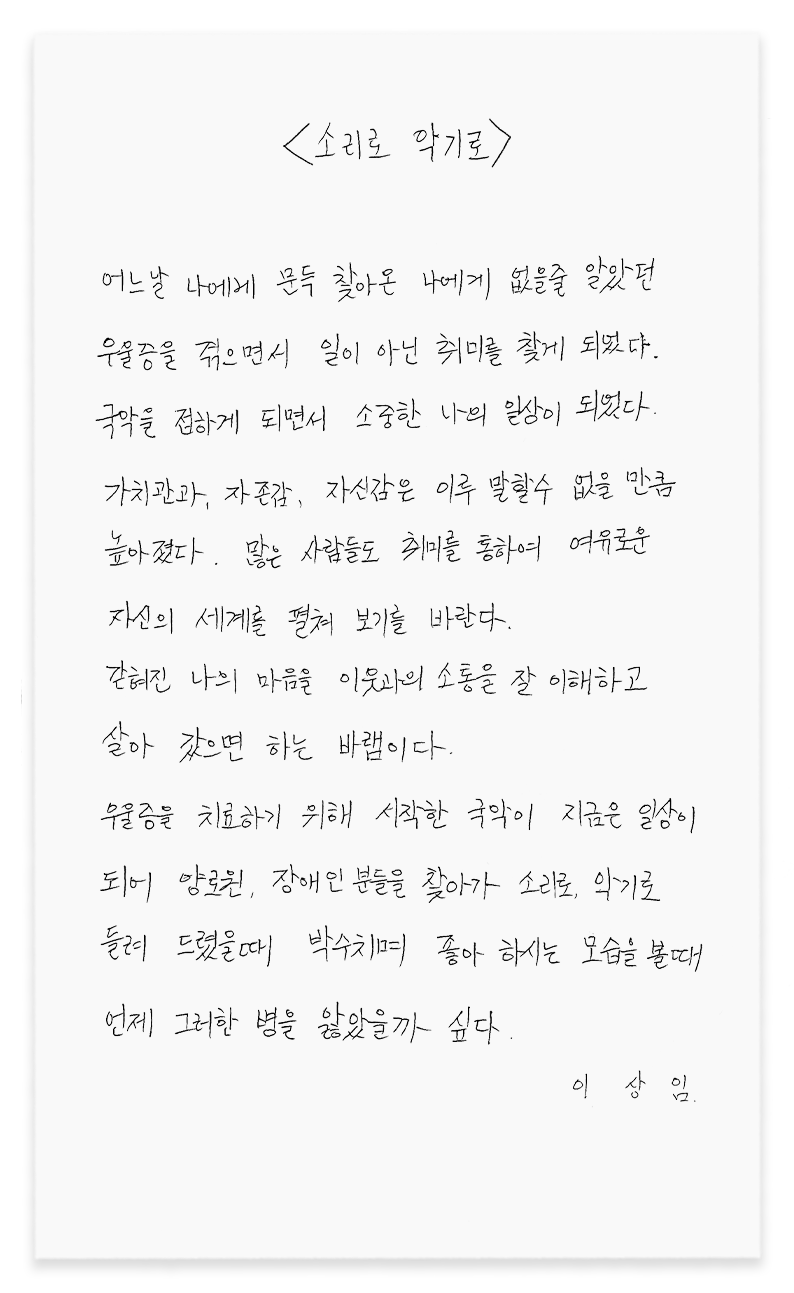 <소리로 악기로>
어느날 나에게 문득 찾아온 나에게 없을줄 알았던
우울증을 겪으면서 일이 아닌 취미를 찾게 되었다.
국악을 접하게 되면서 소중한 나의 일상이 되었다.
가치관과, 자존감, 자신감은 이루 말할수 없을 만큼
높아졌다. 많은 사람들도 취미를 통하여 여유로운
자신의 세계를 펼쳐 보기를 바란다.
갇혀진 나의 마음을 이웃과의 소통을 잘 이해하고
살아 갔으면 하는 바램이다.
우울증을 치료하기 위해 시작한 국악이 지금은 일상이
되어 양로원, 장애인 분들을 찾아가 소리로, 악기로
들려 드렸을때 박수치며 좋아 하시는 모습을 볼때
언제 그러한 병을 앓았을까 싶다.
이 상 임.